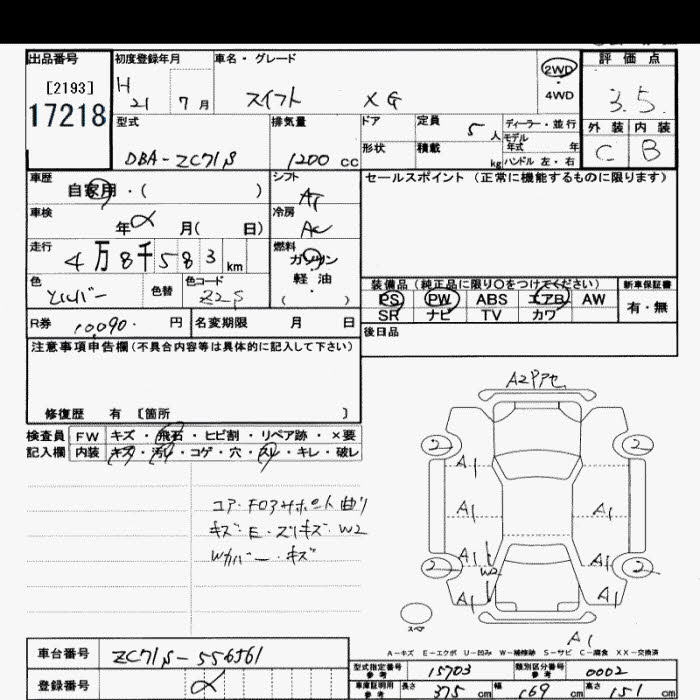 出品番号 初度登録年月 車名・グレード 2WD 評価点
[2193] H
17218 21 7月 スイフト XG 4WD 3.5
型式 排気量 ドア 定員 5人 ディーラー・並行 外装 内装
モデル年式 年
DBA-ZC71S 1200cc 形状 積載 kg ハンドル 左・右 C B
車歴 シフト セールスポイント(正常に機能するものに限ります)
自家用・( ) AT
車検 冷房
年 月( 日) AC
走行 燃料
4万8千583km ガソリン
軽油
( ・ )
色 色替 色コード 装備品(純正品に限り○をつけてください) 新車保証書
シルバー Z2S PS PW ABS エアB AW 有・無
SR ナビ TV カワ
R券 10,090.円 名変期限 月 日 後日品
注意事項申告欄(不具合内容等は具体的に記入して下さい)
修復歴 有 〔箇所 〕
検査員 FW キズ・飛石・ヒビ割・リペア跡・×要
記入欄 内装 キズ・汚レ・コゲ・穴・スレ・キレ・破レ
コア・Fロアサポート曲り
キズ・E・スリキズ・W2
Wカバー・キズ
2 2
A1 A1
A1 A1
A1 A1
2 W2 2
A1 A1
A1
スペア
A-キズ E-エクボ U-凹み W-補修跡 S-サビ C-腐食 XX-交換済
車台番号 ZC71S-556561
登録番号
型式指定番号 参考 15703 類別区分番号 参考 0002
車庫証明用 参考 長さ 375cm 幅 169cm 高さ 151cm